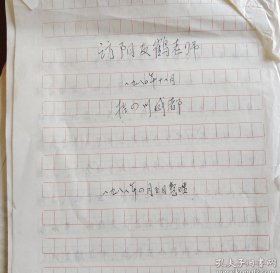 访阳友鹤老师
一九八〇年十一月
于四川成都
一九八八年四月五日整理
孔夫子旧书网